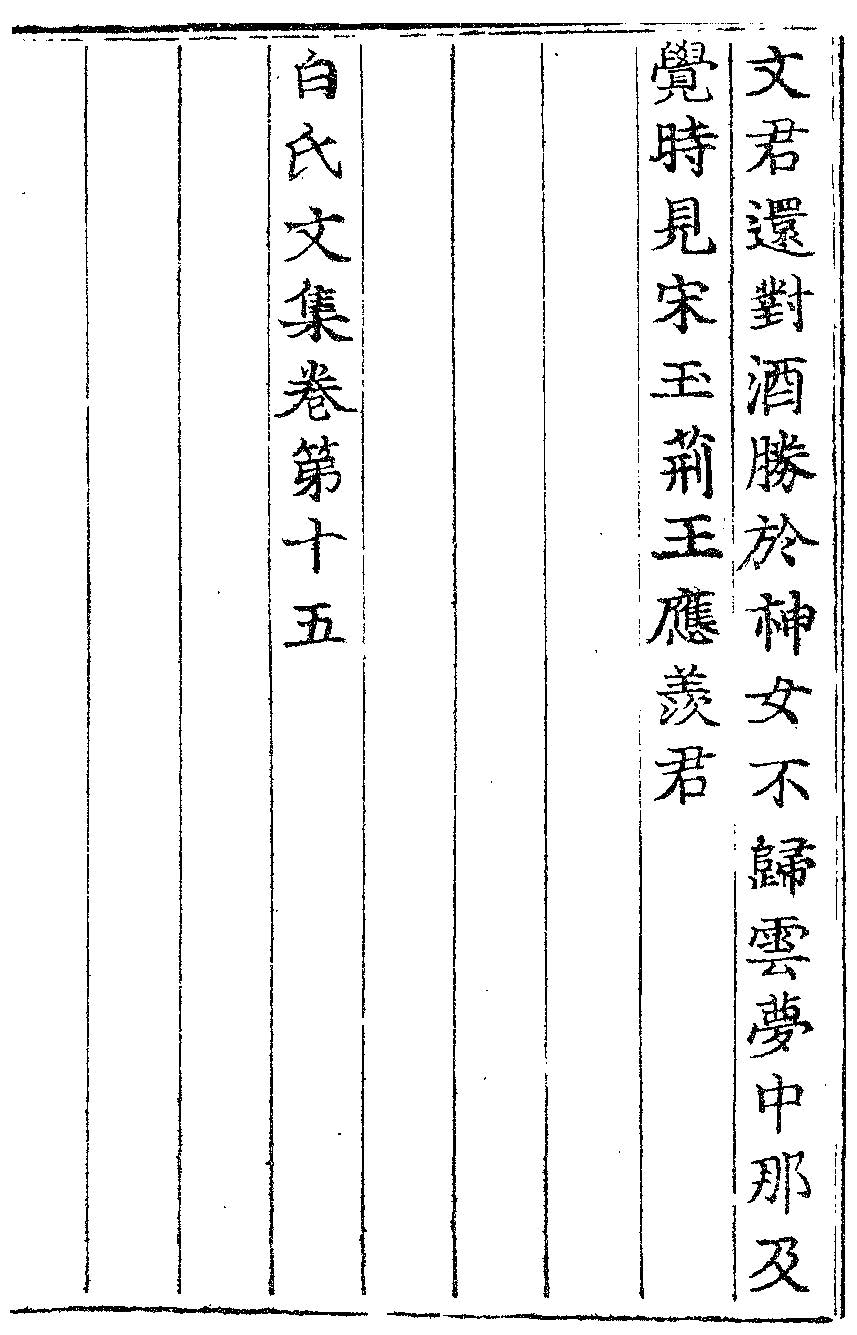 文君還對酒勝於神女不歸雲夢中那及
覺時見宋玉荊王應羨君
白氏文集卷第十五